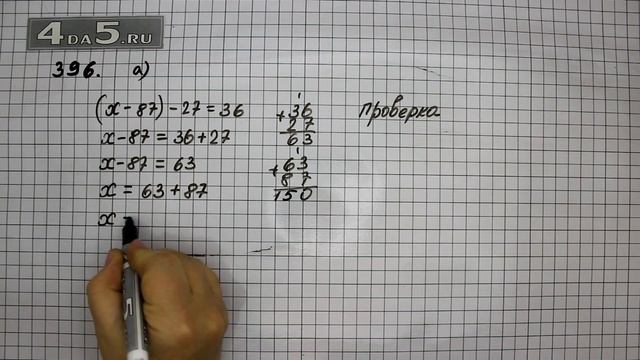 4DA5.RU
396. а)
(x - 87) - 27 = 36
x - 87 = 36 + 27
x - 87 = 63
x = 63 + 87
x =
1
+36
27
63
1
+63
87
150
проверка